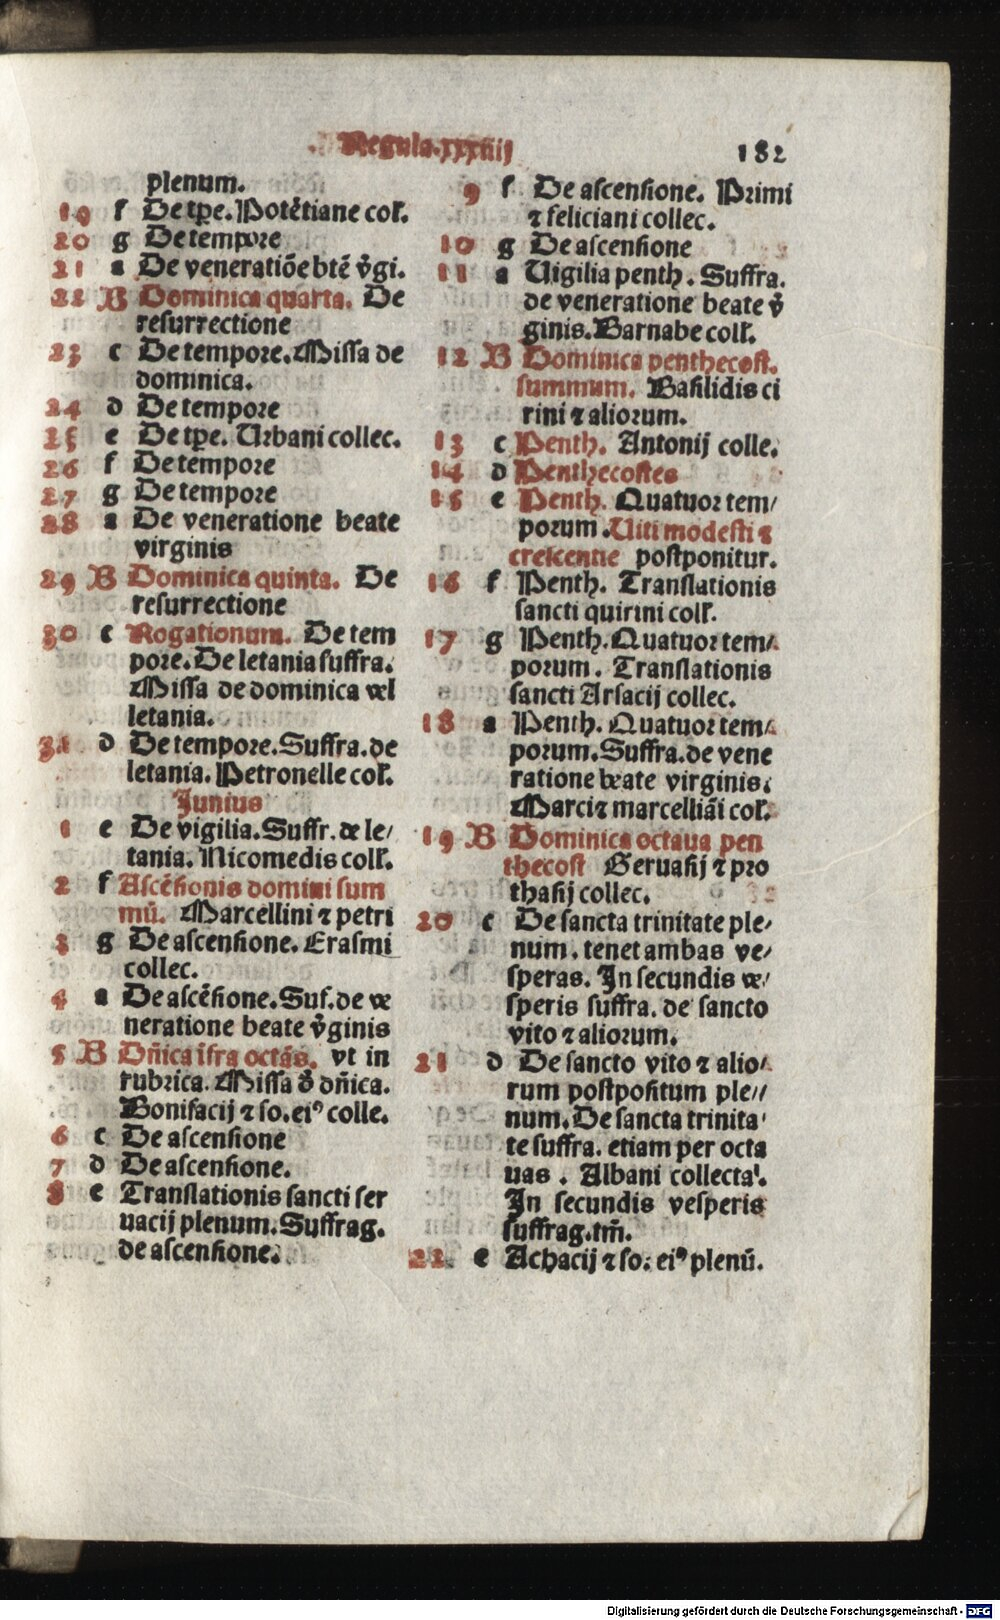 Regula.xxxiiij
182
plenum.
19 f De tp̄e. Potētiane coł.
20 g De tempore
21 a De veneratiōe btē v̄gi.
22 B Dominica quarta. De
resurrectione
23 c De tempore. Missa de
dominica.
24 d De tempore
25 e De tp̄e. Urbani collec.
26 f De tempore
27 g De tempore
28 a De veneratione beate
virginis
29 B Dominica quinta. De
resurrectione
30 c Rogationum. De tem
pore. De letania suffra.
Missa de dominica vel
letania.
31 d De tempore. Suffra. de
letania. Petronelle coł.
Junius
1 e De vigilia. Suffr. de le/
tania. Nicomedis coll.
2 f Ascēsionis domini sum
mū. Marcellini ⁊ petri
3 g De ascensione. Erasmi
collec.
4 a De ascēsione. Suf. de ve
neratione beate v̄ginis
5 B Dñica īfra octās. vt in
rubrica. Missa d̄ dñica.
Bonifacij ⁊ so. eiꝰ colle.
6 c De ascensione
7 d De ascensione.
8 e Translationis sancti ser
uacij plenum. Suffrag.
de ascensione.
9 f De ascensione. Primi
⁊ feliciani collec.
10 g De ascensione
11 a Uigilia penth. Suffra.
de veneratione beate v̄
ginis. Barnabe coll.
12 B Dominica penthecost.
summum. Basilidis ci
rini ⁊ aliorum.
13 c Penth. Antonij colle.
14 d Penthecostes
15 e Penth. Quatuor tem/
porum. Uiti modesti ⁊
crescentie postponitur.
16 f Penth. Translationis
sancti quirini coll.
17 g Penth. Quatuor tem/
porum. Translationis
sancti Arsacij collec.
18 a Penth. Quatuor tem/
porum. Suffra. de vene
ratione beate virginis.
Marci ⁊ marcelliāi coł.
19 B Dominica octaua pen
thecost Geruasij ⁊ pro
thasij collec.
20 c De sancta trinitate ple/
num. tenet ambas ve/
speras. In secundis ve/
speris suffra. de sancto
vito ⁊ aliorum.
21 d De sancto vito ⁊ alio/
rum postpositum ple//
num. De sancta trinita/
te suffra. etiam per octa
uas. Albani collecta.
In secundis vesperis
suffrag. tm̄.
22 e Achacij ⁊ so. eiꝰ plenū.
Digitalisierung gefördert durch die Deutsche Forschungsgemeinschaft - DFG